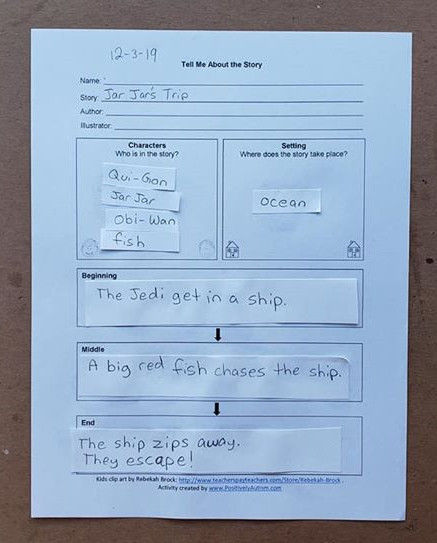 12-3-19
Tell Me About the Story
Name:
Story: Jar Jar's Trip
Author:
Illustrator:
Characters
Who is in the story?
Qui-Gon
Jar Jar
Obi-Wan
fish
Setting
Where does the story take place?
ocean
Beginning
The Jedi get in a ship.
Middle
A big red fish chases the ship.
End
The ship zips away.
They escape!
Kids clip art by Rebekah Brock: http://www.teacherspayteachers.com/Store/Rebekah-Brock .
Activity created by www.PositivelyAutism.com